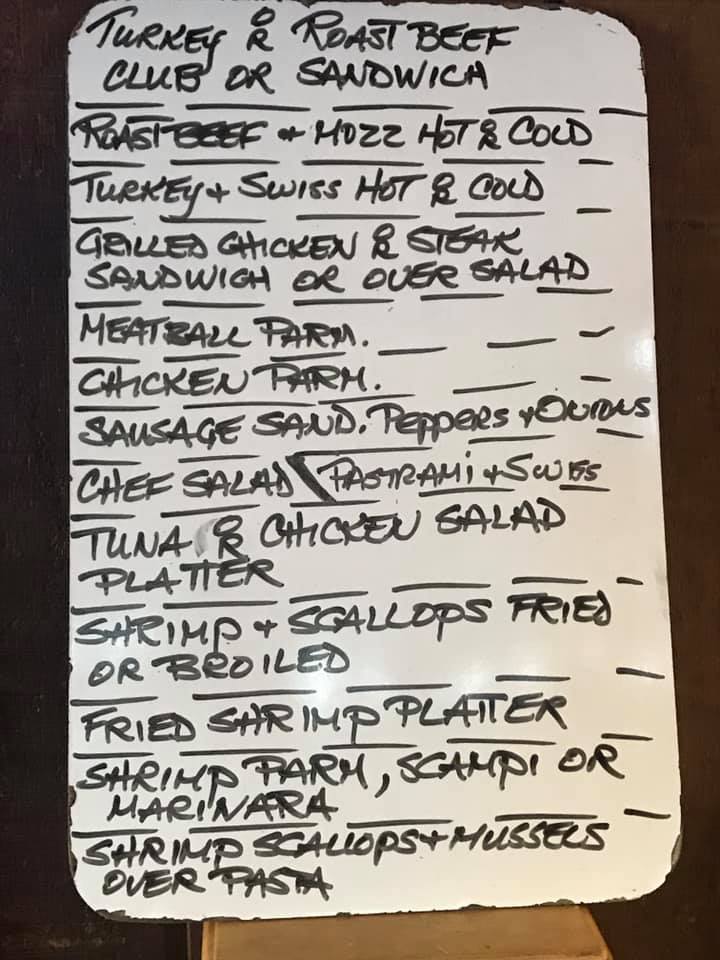 TURKEY OR ROAST BEEF
CLUB OR SANDWICH
ROAST BEEF + MOZZ HOT OR COLD
TURKEY + SWISS HOT OR COLD
GRILLED CHICKEN OR STEAK
SANDWICH OR OVER SALAD
MEATBALL PARM.
CHICKEN PARM.
SAUSAGE SAND. PEPPERS + ONIONS
CHEF SALAD \ PASTRAMI + SWISS
TUNA OR CHICKEN SALAD
PLATTER
SHRIMP + SCALLOPS FRIED
OR BROILED
FRIED SHRIMP PLATTER
SHRIMP PARM, SCAMPI OR
MARINARA
SHRIMP SCALLOPS + MUSSELS
OVER PASTA